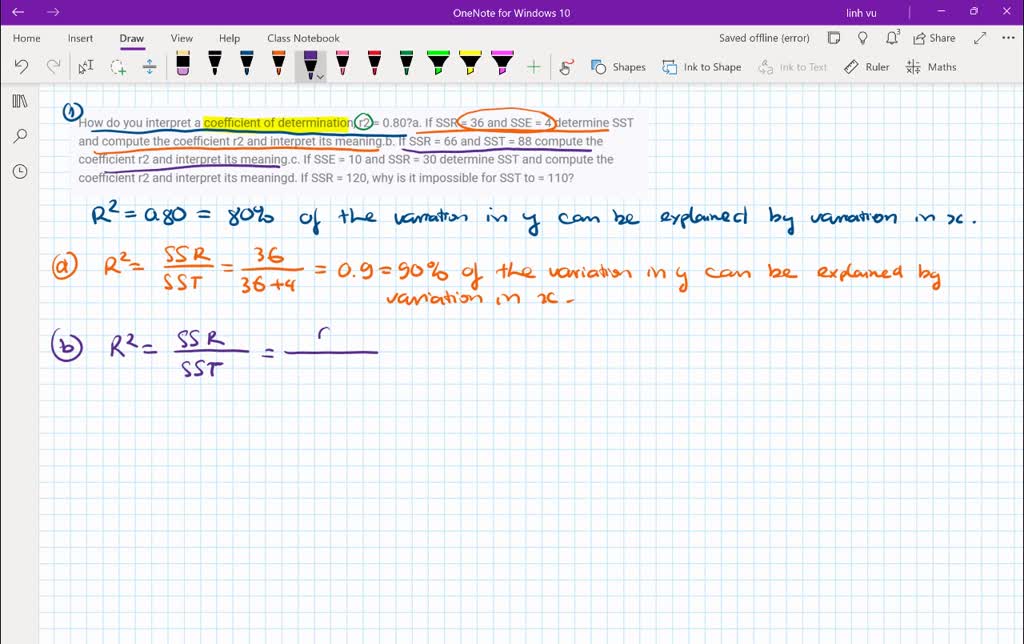 OneNote for Windows 10
linh vu
Home Insert Draw View Help Class Notebook
Saved offline (error) Share
Shapes Ink to Shape Ink to Text Ruler Maths
① How do you interpret a coefficient of determination, r2 = 0.80?a. If SSR = 36 and SSE = 4 determine SST
and compute the coefficient r2 and interpret its meaning.b. If SSR = 66 and SST = 88 compute the
coefficient r2 and interpret its meaning.c. If SSE = 10 and SSR = 30 determine SST and compute the
coefficient r2 and interpret its meaningd. If SSR = 120, why is it impossible for SST to = 110?
R² = 0.80 = 80% of the variation in y can be explained by variation in x.
ⓐ R² = SSR/SST = 36/36+4 = 0.9 = 90% of the variation in y can be explained by
variation in x.
ⓑ R² = SSR/SST =